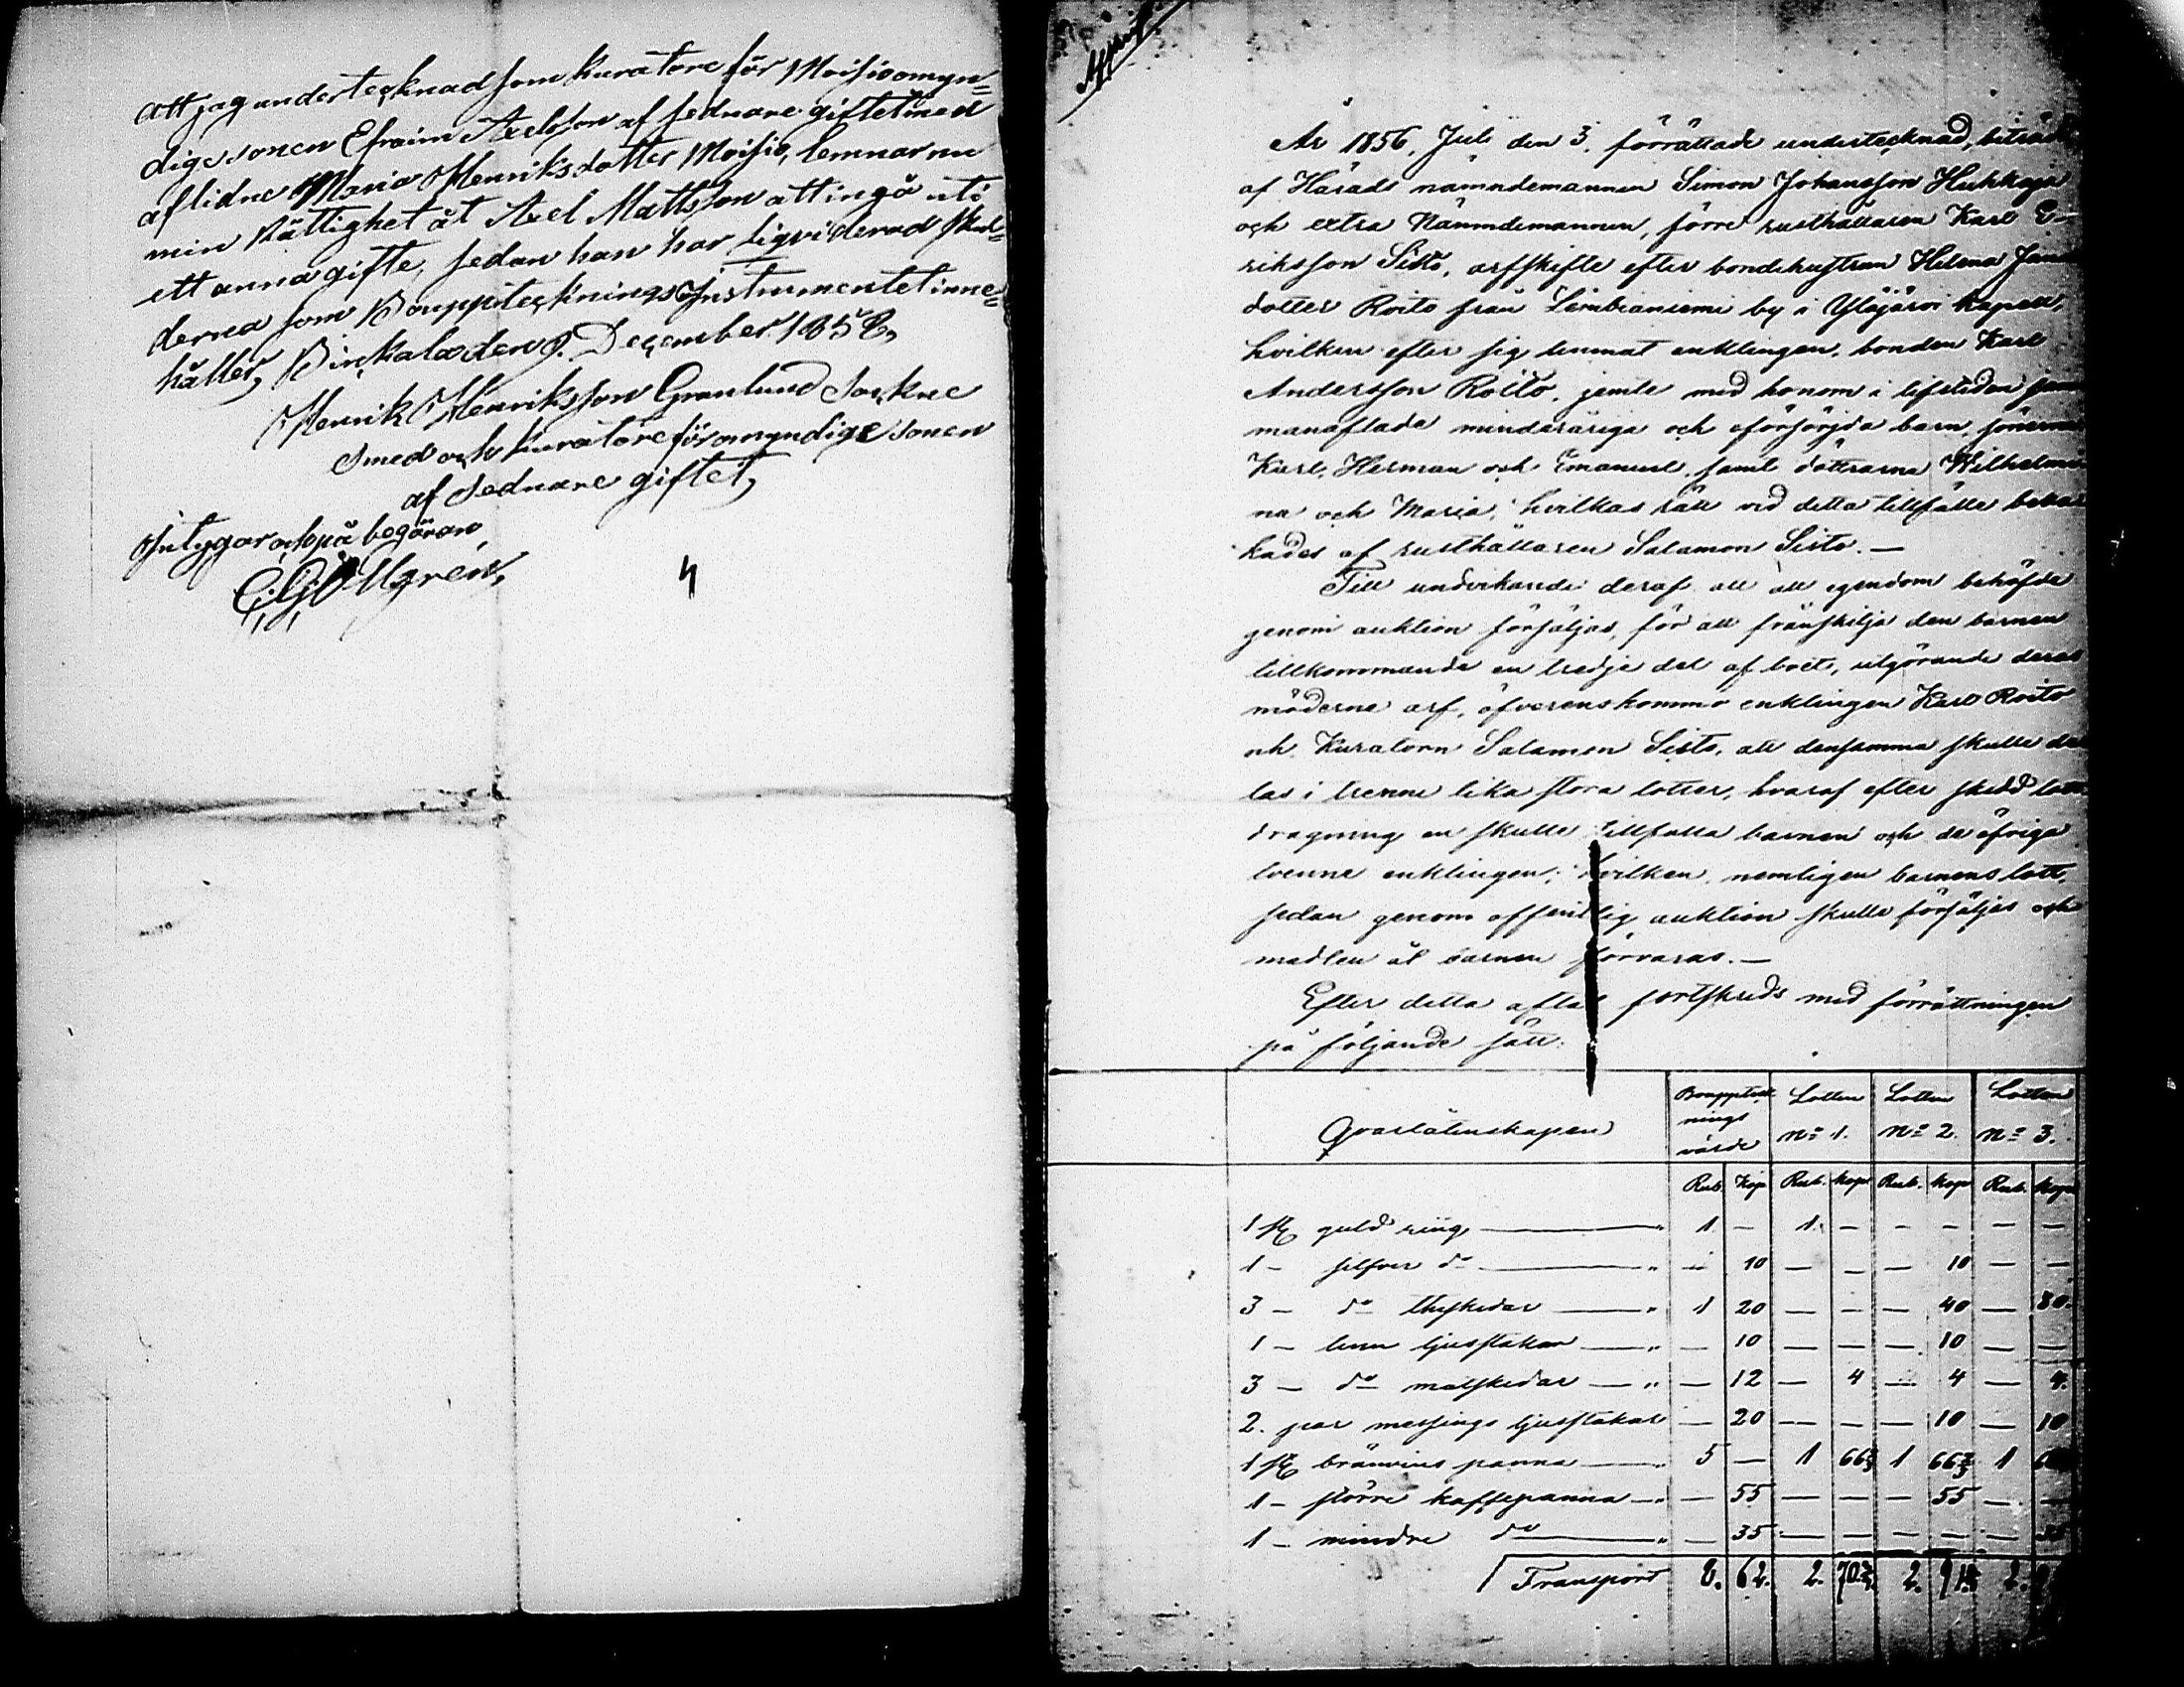 Att jag undertecknad som Kuratore för Moisio omyn=
dige sonen Efraim Axelsson af sednare giftet med
aflidne Maria Henriksdotter Moisio, lemnar nu
min Rättighet åt Axel Mattsson att ingå uti
ett anna gifte, sedan han har liqviderad skul=
derna som Bouppteknings Instrumentet inne=
håller, Birkala den 9. December 1856,
Henrik Henriksson Granlund Sockne
Smed och Kuratore för omyndige sonen
af Sednare giftet,
Intygar och på begäran
4
År 1856, Juli den 3. förrättade undertecknad, biträdd
af Härads nämndemannen Simon Johansson Hukkaja
och extra Nämndemannen, förre rusthållaren Karl E-
riksson Sisto, arfskifte efter bondehustrun Helena
dotter Roito från Lembianiemi by i Ylöjärvi kapell,
hvilken efter sig lemnat enklingen, bonden Karl
Andersson Roito, jemte med honom i lifstiden sam
manaflade minderåriga och oförsörjda barn, sönerna
Karl, Herman och Emanuel, samt döttrarna Wilhelmi
na och Maria, hvilkas rätt vid detta tillfälle beva
kades af rusthållaren Salamon Sisto. —
Till undvikande deraf att all egendom behöfde
genom auktion försäljas, för att frånskilja den barnen
tillkommande en tredje del af boet, utgörande deras
möderne arf, öfverenskommo enklingen Karl Roito
och Kuratorn Salamon Sisto, att densamma skulle de
las i trenne lika stora lotter, hvaraf efter skedd lott
dragning en skulle tillfalla barnen och de öfriga
tvenne enklingen; hvilken, nemligen barnens lott,
sedan genom offentlig auktion skulle försäljas och
medlen åt barnen förvaras. —
Efter detta aftal fortskreds med förrättningen
på följande sätt:
Qvarlåtenskapen Bouppteck nings värde Lotten No 1. Lotten No 2. Lotten No 3.
Rub. Kop. Rub. Kop. Rub. Kop. Rub. Kop.
1 st. guld ring — 1. — 1. — — — — —
1 — silfver do — — 10 — — — 10 — —
3 — do theskedar — 1 20 — — — 40 — 80.
1 — tenn ljusstakar — — 10 — — — 10 — —
3 — do matskedar — — 12 — 4 — 4 — 4.
2. par messings ljusstakar — 20 — — — 10 — 10
1 st. bränvins panna — 5 — 1 66⅔ 1 66⅔ 1
1 — större kaffepanna — — 55 — — — 55 — —
1 — mindre do — — 35 — — — — — 35
Transport 8. 62. 2. 70⅔. 2. 2.